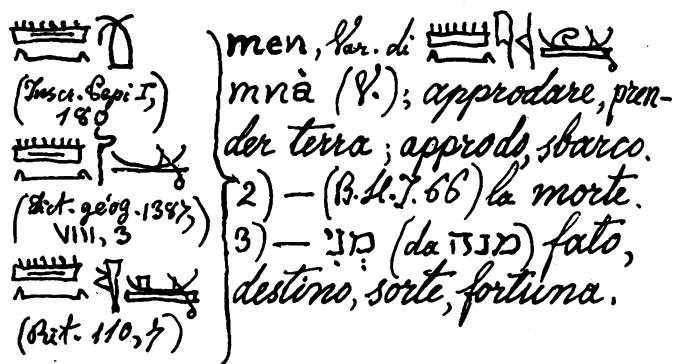 (Inscr. I,
180
(Dict. géog. 1387,)
VIII, 3
(Rit. 110, 7)
men, Var. di
mnà (V.); approdare, pren-
der terra; approdo, sbarco.
2) — (B.H.J. 66) la morte.
3) — מְנִי (da מנה) fato,
destino, sorte, fortuna.